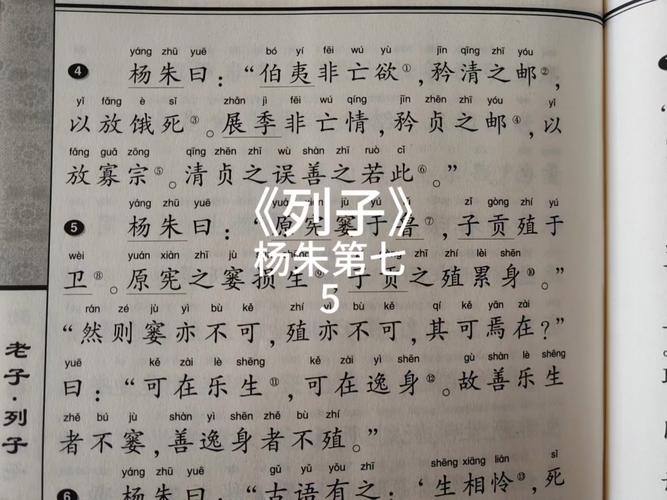 yáng zhū yuē bó yí fēi wú yù jīn qīng zhī yóu
④ 杨朱曰：“伯夷非亡欲①，矜清之邮②，
yǐ fàng è sǐ zhǎn jì fēi wú qíng jīn zhēn zhī yóu yǐ
以放饿死③。展季非亡情，矜贞之邮④，以
fàng guǎ zōng qīng zhēn zhī wù shàn zhī ruò cǐ
放寡宗⑤。清贞之误善之若此⑥。”
yáng zhū yuē zǐ gòng zhí yú
⑤ 杨朱曰：“原宪窭于鲁⑦，子贡殖于
wèi yuán xiàn zhī jù sǔn zhī zhí lèi shēn
卫⑧。原宪之窭损生，子贡之殖累身⑩。”
rán zé jù yì bù kě zhí yì bù kě qí kě yān zài
“然则窭亦不可，殖亦不可，其可焉在？”
yuē kě zài lè shēng kě zài yì shēn gù shàn lè shēng
曰：“可在乐生⑪，可在逸身⑫。故善乐生
zhě bú jù shàn yì shēn zhě bù zhí
者不窭，善逸身者不殖。”
yáng zhū yuē gǔ yǔ yǒu zhī shēng xiāng lián sǐ
⑥ 杨朱曰：“古语有之：‘生相怜①，死
《列子》
杨朱第七
5
老子·列子